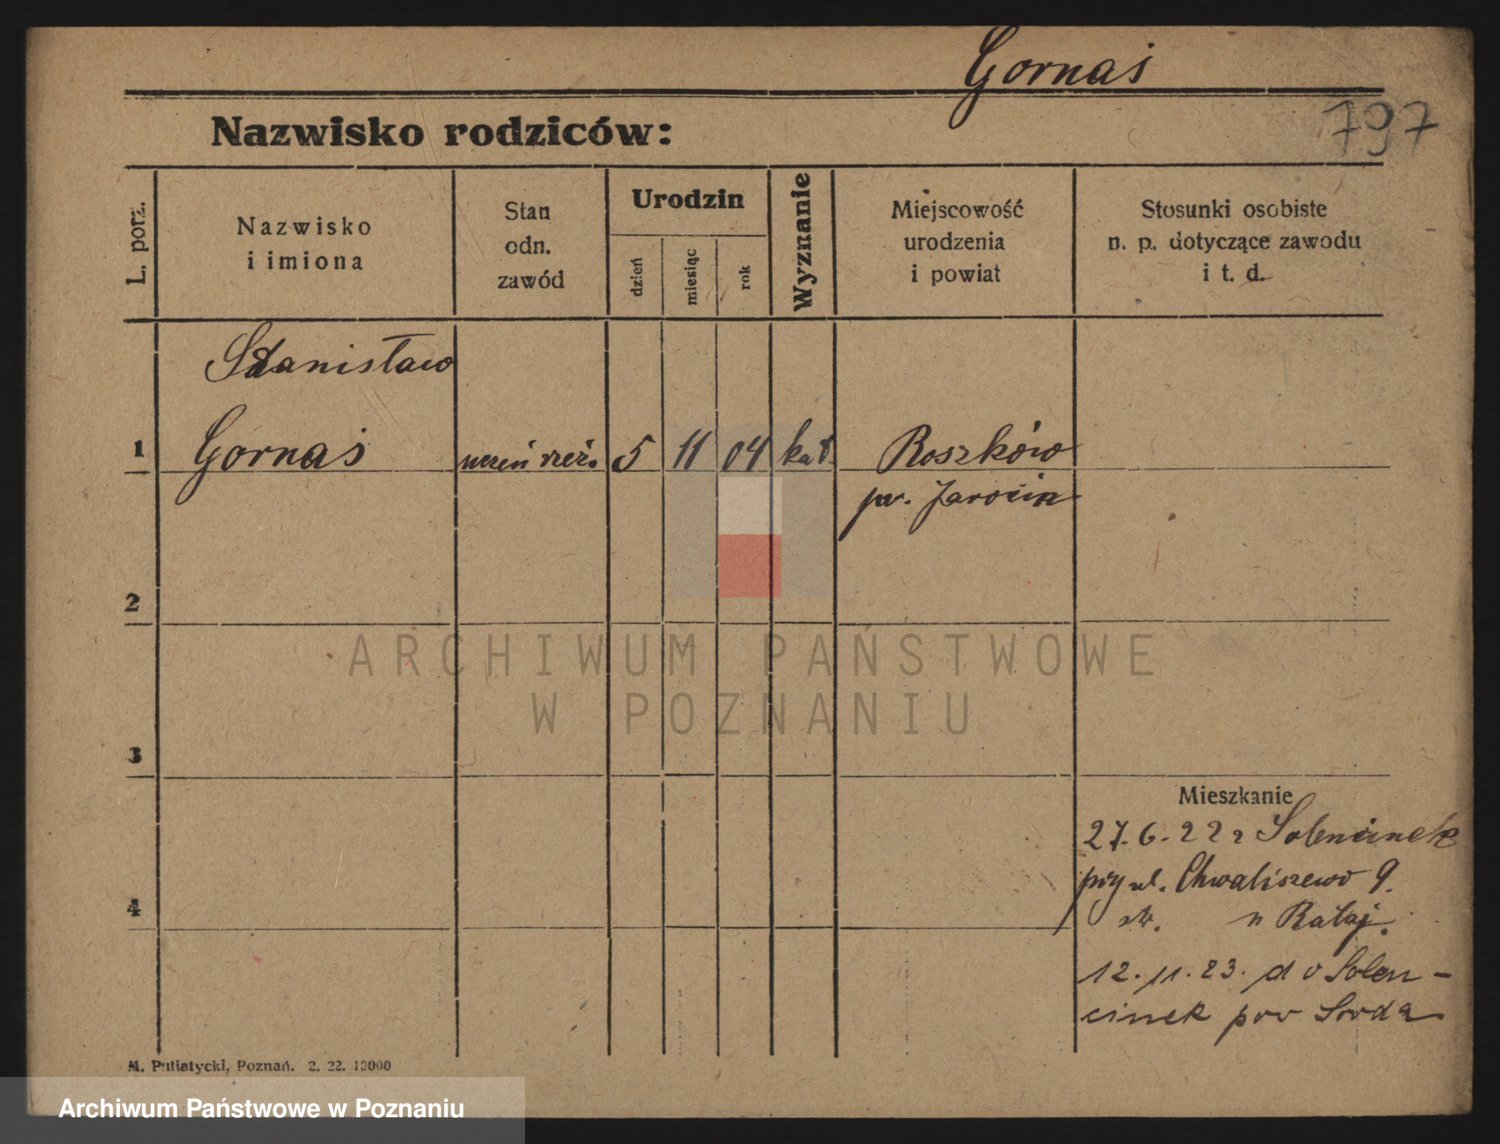 Gornaś
797
Nazwisko rodziców:
L. porz.
Nazwisko
i imiona
Stan
odn.
zawód
Urodzin
dzień
miesiąc
rok
Wyznanie
Miejscowość
urodzenia
i powiat
Stosunki osobiste
n. p. dotyczące zawodu
i t. d.
Stanisław
1 Gornaś uczeń rzeź. 5 11 04 kat. Roszków
pw. Jarocin
2
3
4
Mieszkanie
27.6.22 z Solencinek
przy ul. Chwaliszewo 9.
u Rataj.
12.11.23. do Solen-
cinek pow Środa
M. Putiatycki, Poznań. 2. 22. 10000
ARCHIWUM PAŃSTWOWE
W POZNANIU
Archiwum Państwowe w Poznaniu